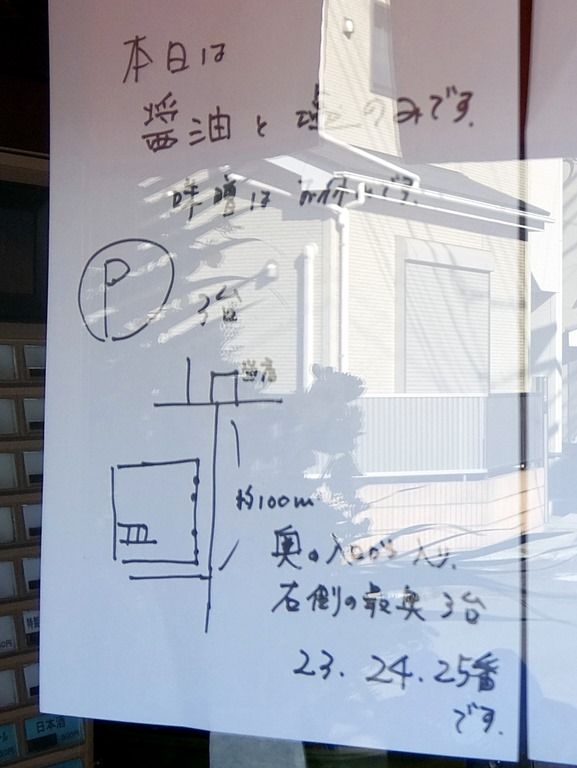 本日は
醤油と塩のみです.
味噌は お休みです.
P
3台
当店
約100m
奥の入口から入り、
右側の最奥 3台
23. 24. 25番
です.
日本酒